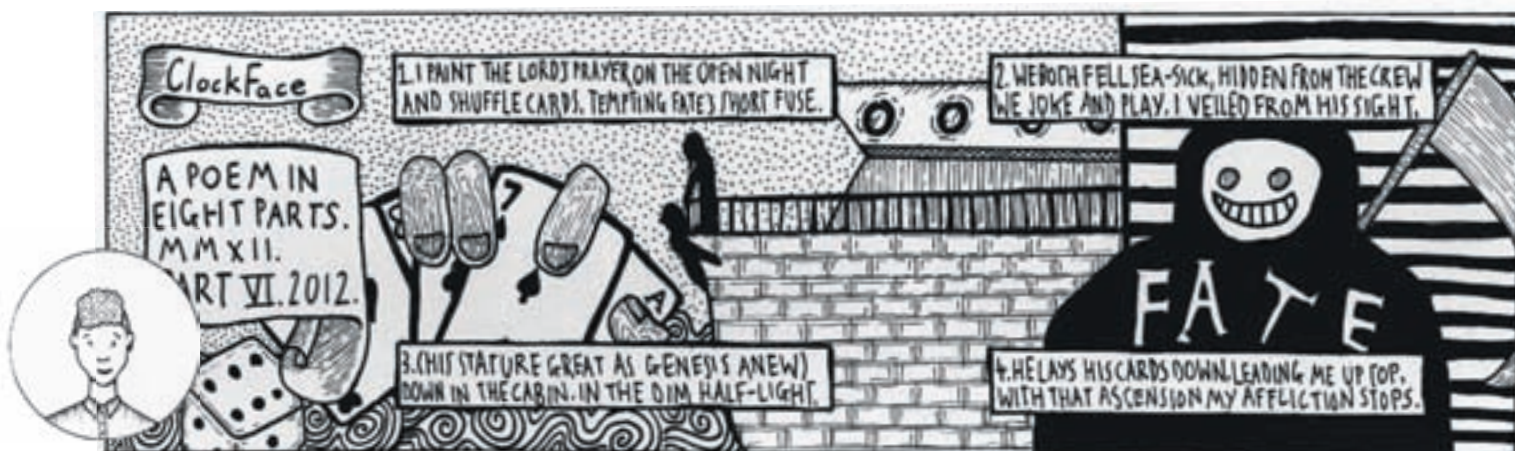 ClockFace
A POEM IN
EIGHT PARTS.
MMXII.
PART VI. 2012.
1. I PAINT THE LORDS PRAYER ON THE OPEN NIGHT
AND SHUFFLE CARDS. TEMPTING FATE'S SHORT FUSE.
2. WE BOTH FELL SEA-SICK, HIDDEN FROM THE CREW
WE JOKE AND PLAY. I VEILED FROM HIS SIGHT.
7
A
FATE
3. (HIS STATURE GREAT AS GENESIS ANEW)
DOWN IN THE CABIN. IN THE DIM HALF-LIGHT.
4. HE LAYS HIS CARDS DOWN, LEADING ME UP TOP,
WITH THAT ASCENSION MY AFFLICTION STOPS.